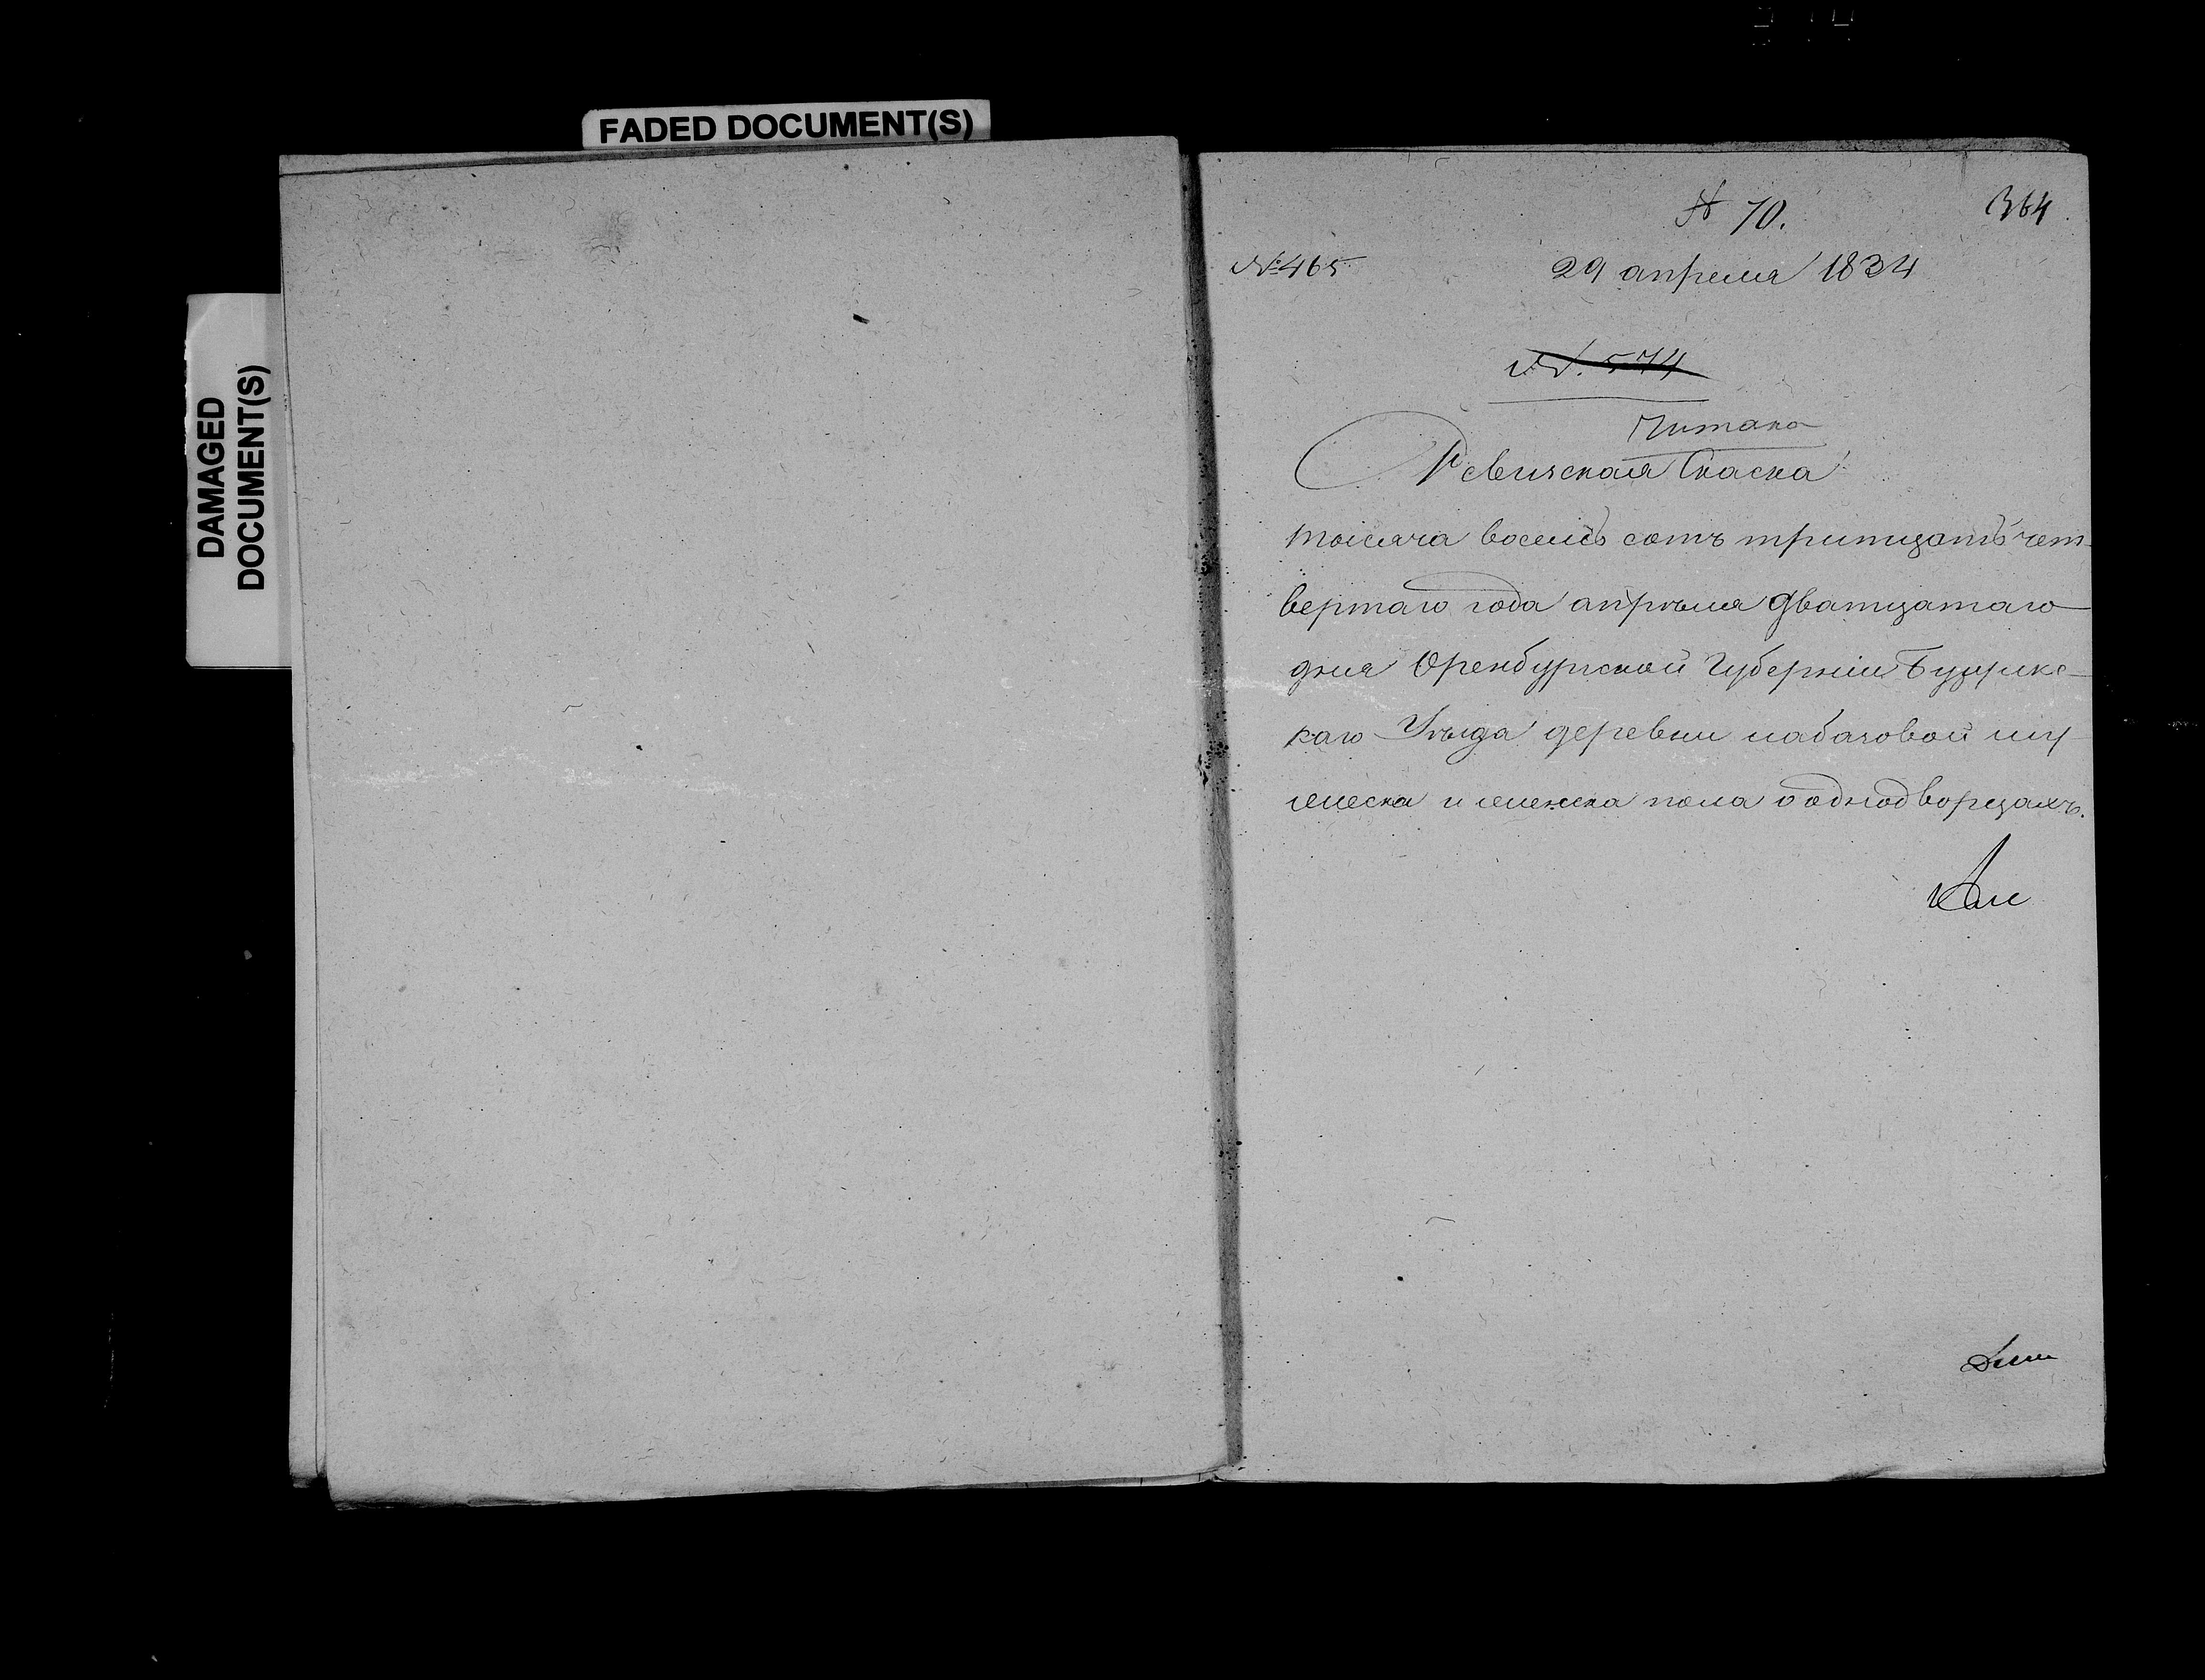 FADED DOCUMENT(S)
DAMAGED
DOCUMENT(S)
№ 70.
364
№ 465
29 апреля 1834
№. 574
Читано
Ревизская Скаска
тысяча восемь сотъ тритцать чет
вертаго года апреля дватцатаго
дня Оренбургской Губерніи Бузулкс
каго Уезда деревни лабазовой му
жеска и женска пола о однодворцахъ.